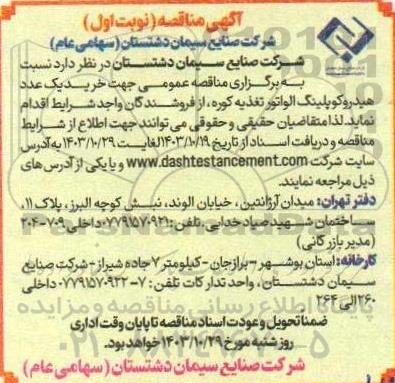 آگهی مناقصه (نوبت اول)
شرکت صنایع سیمان دشتستان (سهامی عام)
شرکت صنایع سیمان دشتستان در نظر دارد نسبت
به برگزاری مناقصه عمومی جهت خرید یک عدد
هیدروکوپلینگ الواتور تغذیه کوره، از فروشندگان واجد شرایط اقدام
نماید. لذا متقاضیان حقیقی و حقوقی می توانند جهت اطلاع از شرایط
مناقصه و دریافت اسناد از تاریخ ۱۴۰۳/۱۰/۱۹ لغایت ۱۴۰۳/۱۰/۲۹ به آدرس
سایت شرکت www.dashtestancement.com و یا یکی از آدرس های
ذیل مراجعه نمایند.
دفتر تهران: میدان آرژانتین، خیابان الوند، نبش کوچه البرز، پلاک ۱۱،
ساختمان شهید صیاد خدایی. تلفن: ۰۷۷۹۱۵۷۰۹۲۱ داخلی ۷۰۹-۲۰۴
(مدیر بازرگانی)
کارخانه: استان بوشهر - برازجان - کیلومتر ۷ جاده شیراز - شرکت صنایع
سیمان دشتستان، واحد تدارکات تلفن: ۷-۰۷۷۹۱۵۷۰۹۲۲ داخلی
۲۶۰ الی ۲۶۴
ضمنا تحویل و عودت اسناد مناقصه تا پایان وقت اداری
روز شنبه مورخ ۱۴۰۳/۱۰/۲۹ خواهد بود.
شرکت صنایع سیمان دشتستان (سهامی عام)